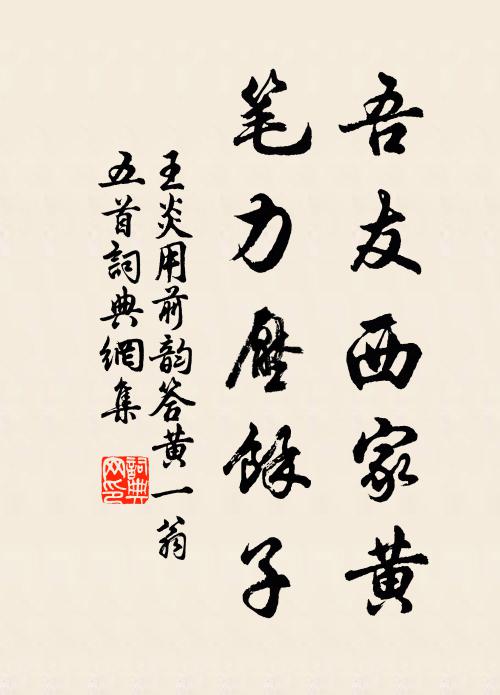 吾友西家黄
笔力壓餘子
王炎用前韵答黄一翁
五首詞典網集
詞典
网印